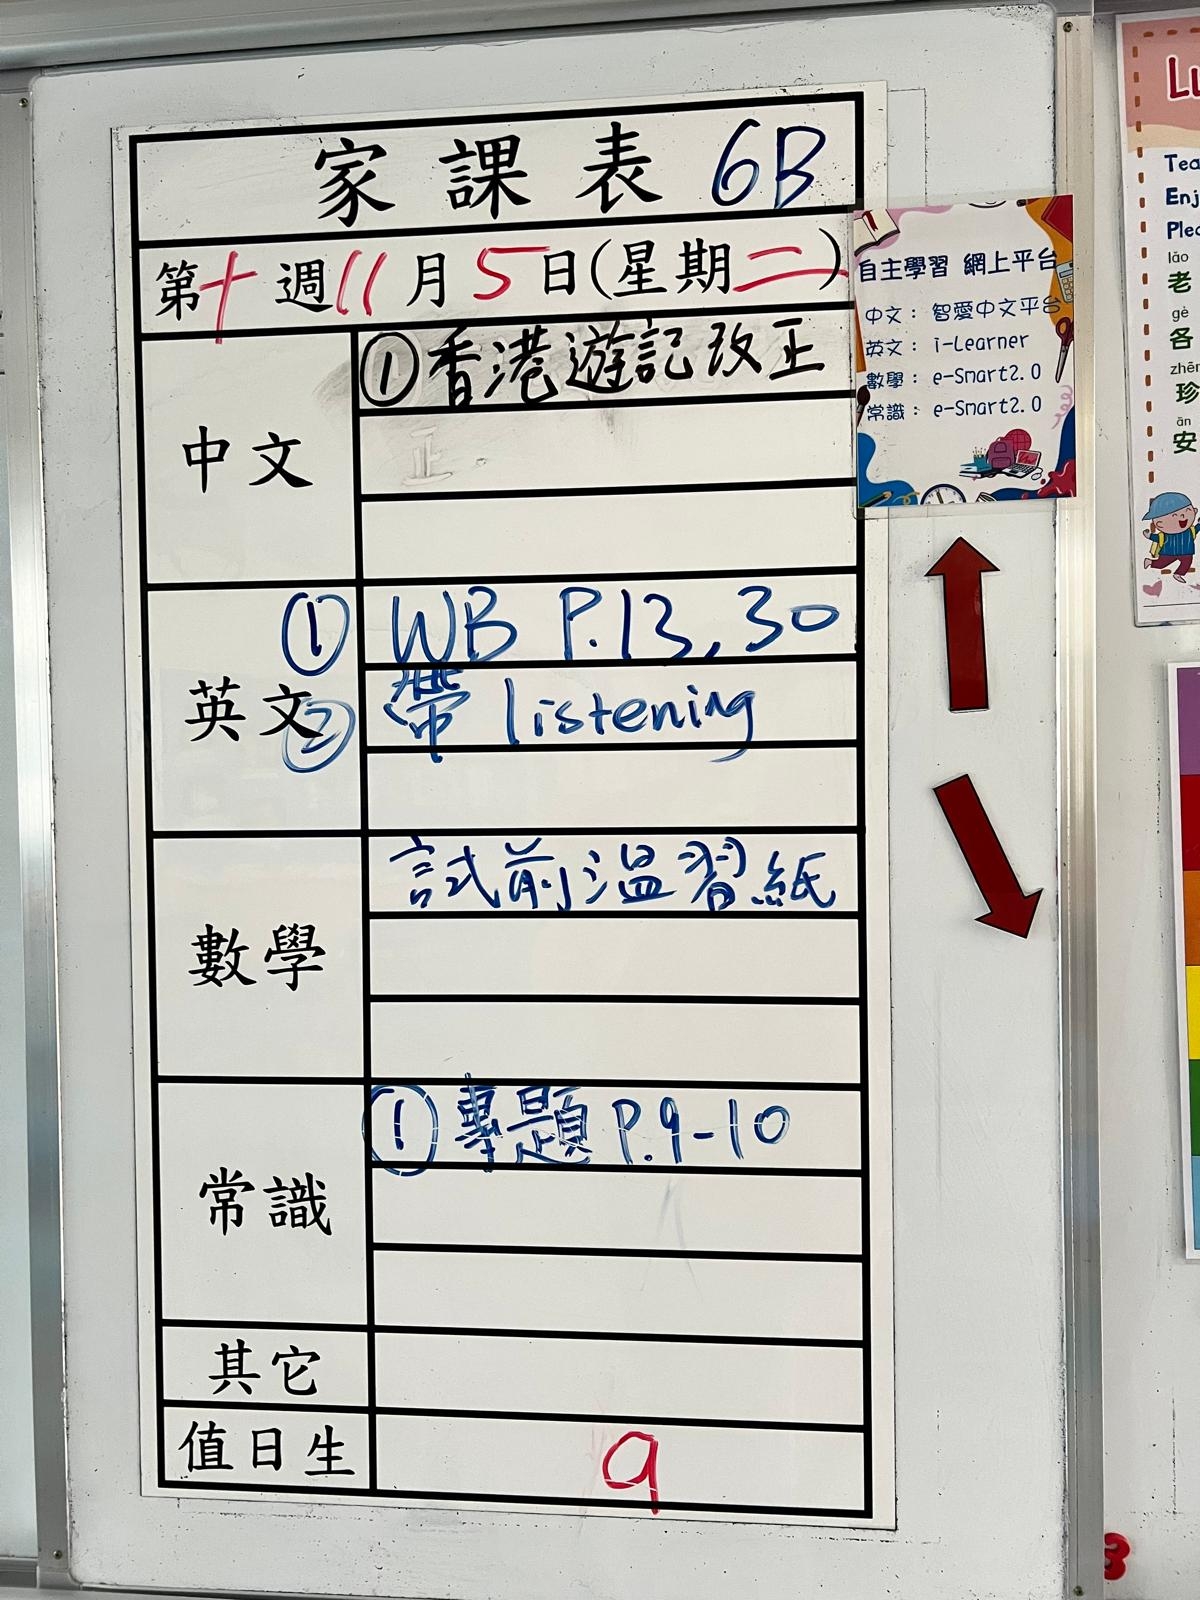 家課表 6B
第十週11月5日(星期二)
中文
①香港遊記改正
英文
① WB P.13,30
② 帶 listening
數學
試前溫習紙
常識
① 專題 P.9-10
其它
值日生
9
自主學習 網上平台
中文： 智愛中文平台
英文： i-Learner
數學： e-Smart2.0
常識： e-Smart2.0
lǎo
老
gè
各
珍
ān
安
3